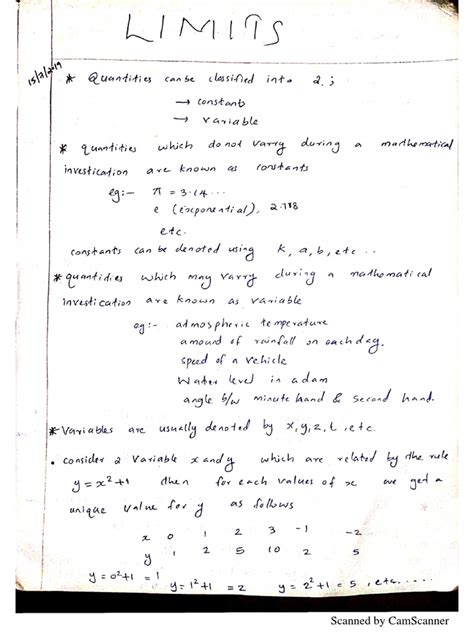 LIMITS
15/7/2019
* Quantities can be classified into 2.;
→ constants
→ variable
* quantities which do not varry during a mathematical
investication are known as constants
eg:- π = 3.14...
e (exponential), 2.718
etc.
constants can be denoted using k, a, b, etc...
* quantities which may varry during a mathematical
investication are known as variable
eg:- atmospheric temperature
amount of rainfall on each day.
speed of a vehicle
Water level in a dam
angle b/w minute hand & second hand.
* Variables are usually denoted by x, y, z, t, etc.
• consider 2 variable x and y which are related by the rule
y = x²+1 then for each values of x we get a
unique value for y as follows
x 0 1 2 3 -1 -2
y 1 2 5 10 2 5
y = 0²+1 = 1 y = 1²+1 = 2 y = 2²+1 = 5, etc.....
Scanned by CamScanner